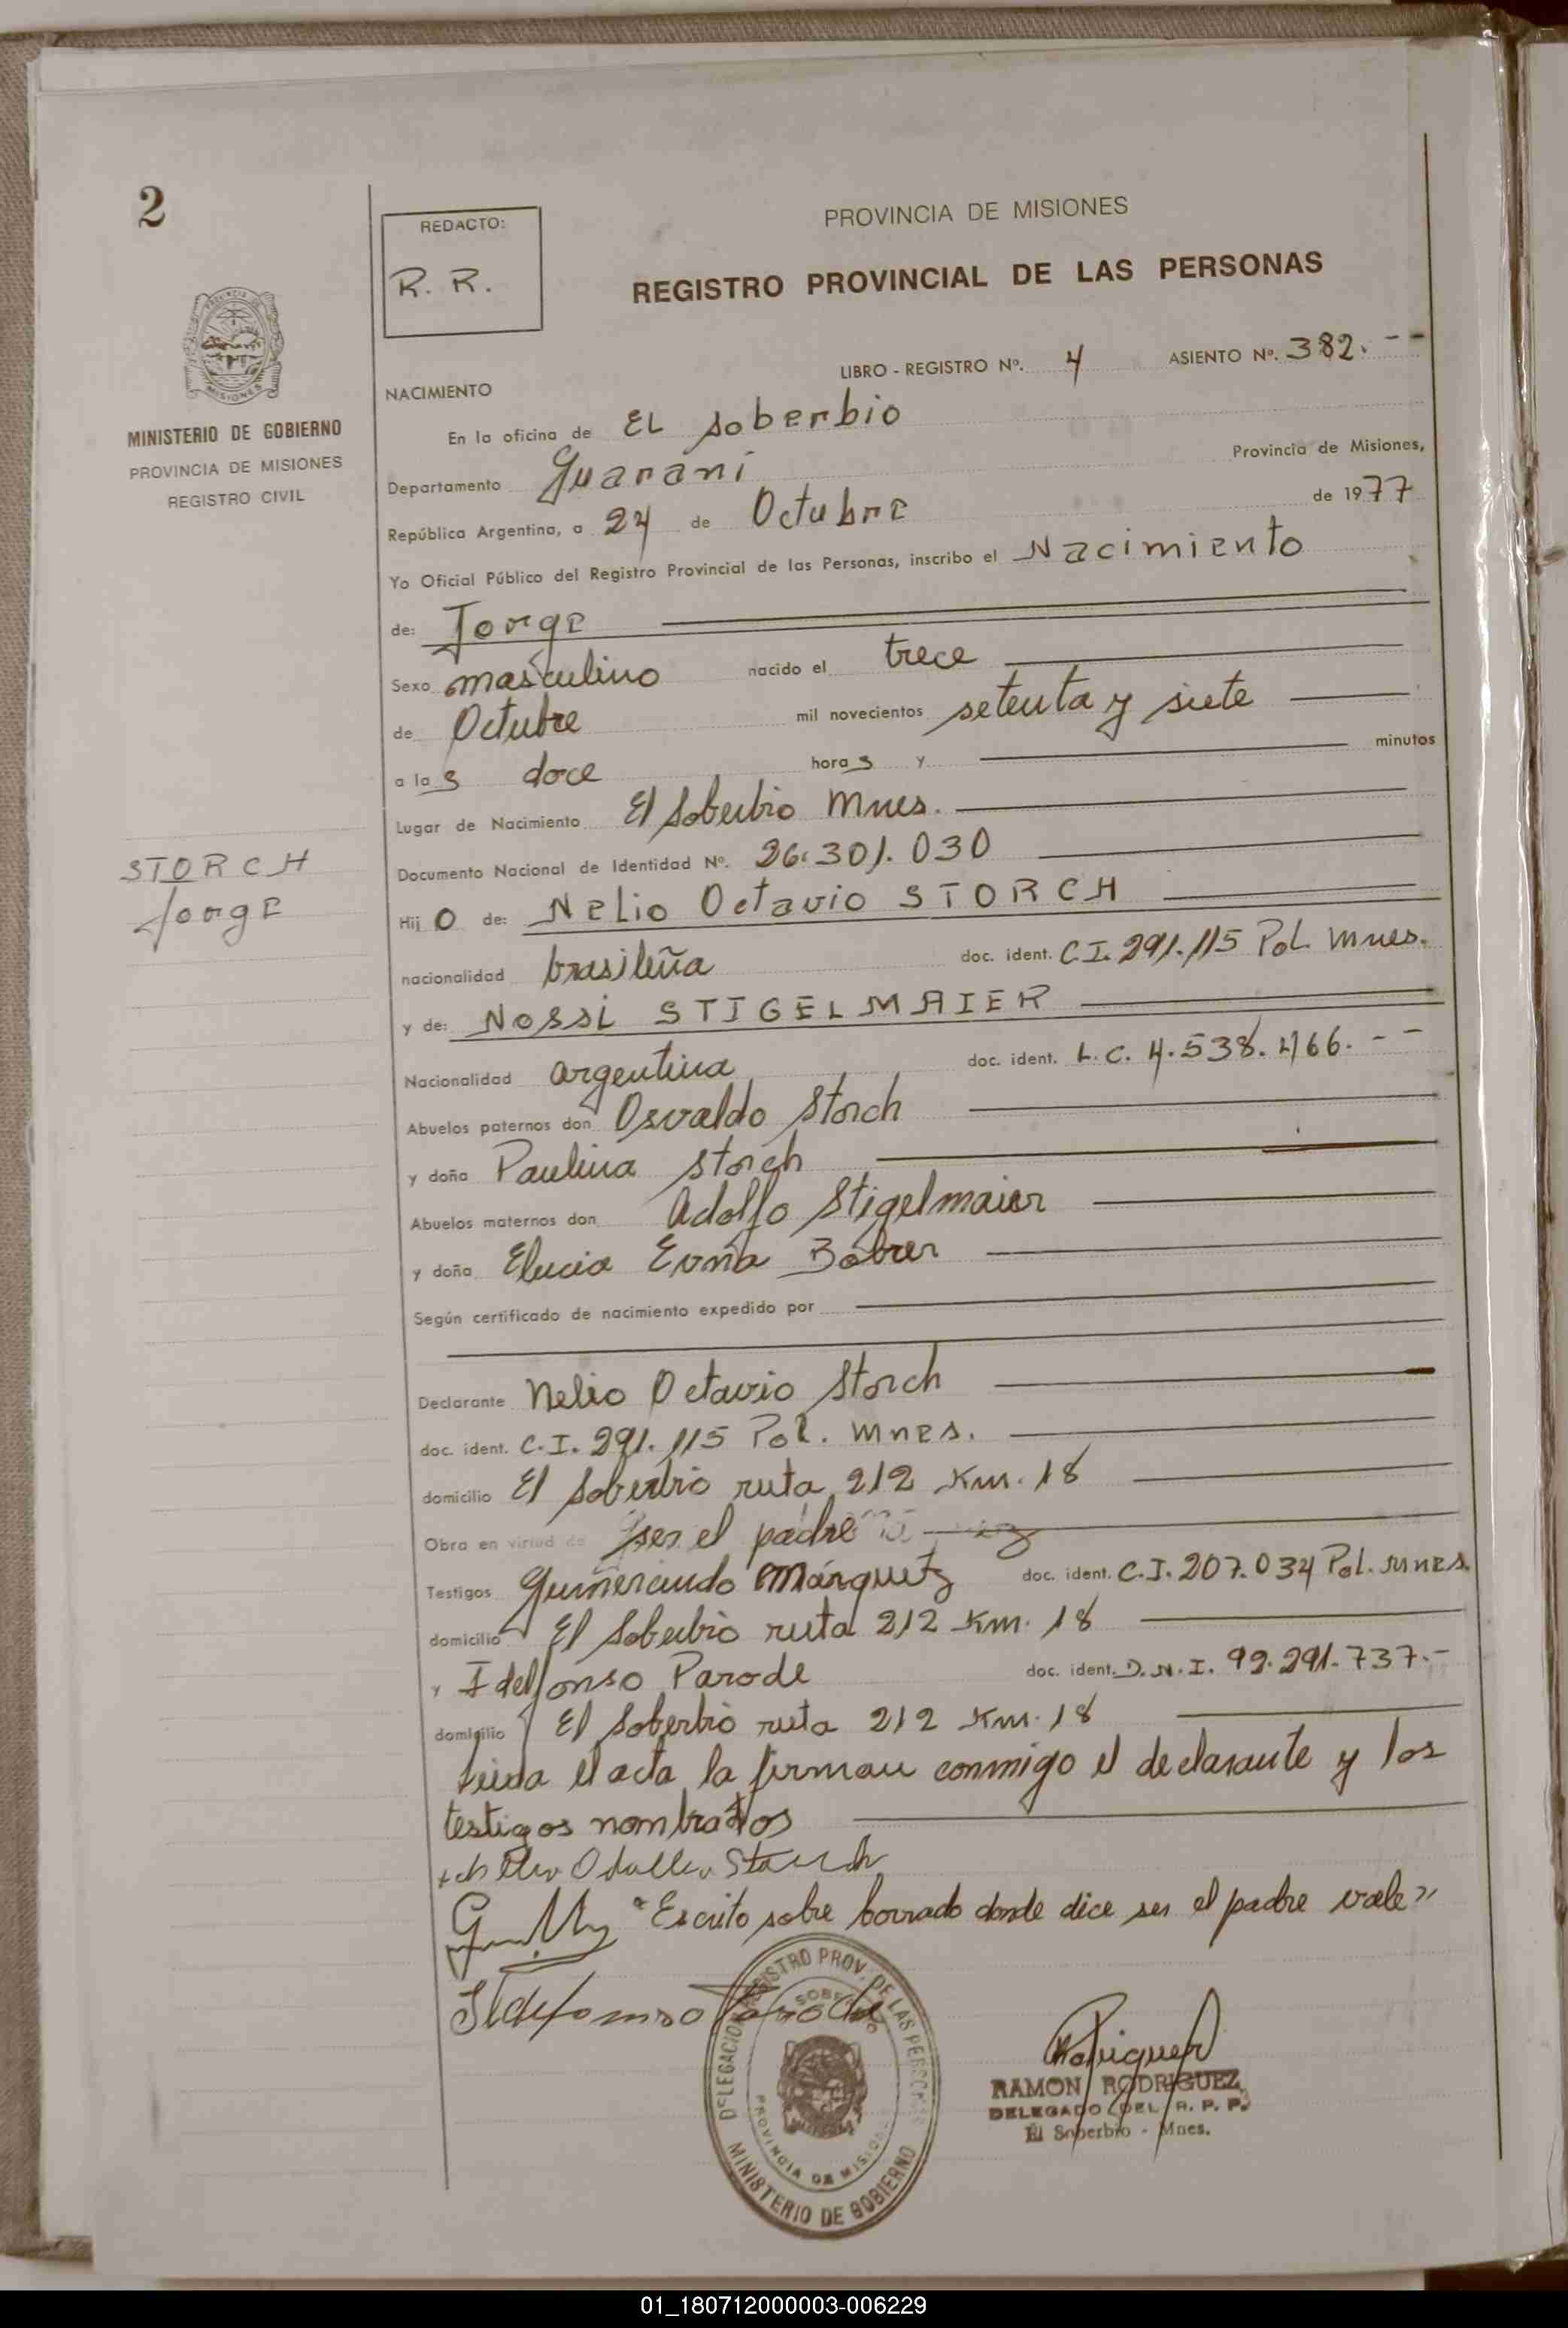 2
REDACTO:
R. R.
PROVINCIA DE MISIONES
REGISTRO PROVINCIAL DE LAS PERSONAS
MINISTERIO DE GOBIERNO
PROVINCIA DE MISIONES
REGISTRO CIVIL
LIBRO - REGISTRO Nº. 4 ASIENTO Nº. 382. - -
NACIMIENTO
En la oficina de EL soberbio
Departamento Guarani Provincia de Misiones,
República Argentina, a 24 de Octubre de 1977
Yo Oficial Público del Registro Provincial de las Personas, inscribo el Nacimiento
de: Jorge
Sexo masculino nacido el trece
de Octubre mil novecientos setenta y siete
a las doce horas y minutos
Lugar de Nacimiento El Soberbio Mnes.
Documento Nacional de Identidad Nº. 26.301.030
STORCH
Jorge
Hijo de: Nelio Octavio STORCH
nacionalidad brasileña doc. ident. C.I. 291.115 Pol. Mnes.
y de: Nossi STIGELMAIER
Nacionalidad argentina doc. ident. L.C. 4.538.466. - -
Abuelos paternos don Osvaldo Storch
y doña Paulina Storch
Abuelos maternos don Adolfo Stigelmaier
y doña Elucia Erna
Según certificado de nacimiento expedido por
Declarante Nelio Octavio Storch
doc. ident. C.I. 291.115 Pol. Mnes.
domicilio El Soberbio ruta 212 Km. 18
Obra en virtud de ser el padre
Testigos Gumercindo Márquez doc. ident. C.I. 207.034 Pol. Mnes.
domicilio El Soberbio ruta 212 Km. 18
y Idelfonso Parode doc. ident. D.N.I. 92.291.737.-
domicilio El Soberbio ruta 212 Km. 18
Leida el acta la firman conmigo el declarante y los
testigos nombrados
"Escrito sobre borrado donde dice ser el padre vale"
Ildefonso Parode
DELEGACION REGISTRO PROV. DE LAS PERSONAS
SOBERBIO
PROVINCIA DE MISIONES
MINISTERIO DE GOBIERNO
Rodriguez
RAMON RODRIGUEZ
DELEGADO DEL R. P. P.
El Soberbio - Mnes.
01_180712000003-006229